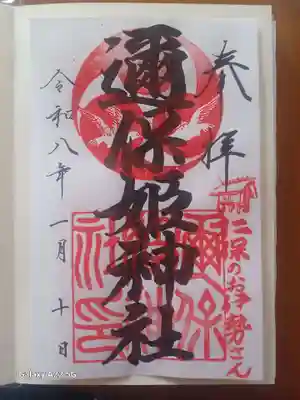 参拝
二保のお伊勢さん
邇保姫神社
令和八年 一月 十日